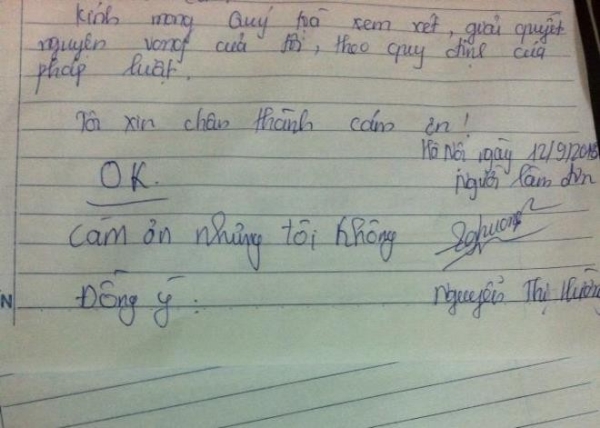 Kính mong Quý toà xem xét, giải quyết
nguyện vọng của tôi, theo quy định của
pháp luật.
Tôi xin chân thành cám ơn!
Hà Nội, ngày 12/9/2015
OK.
Người làm đơn
Cảm ơn nhưng tôi không
Đồng ý.
Nguyễn Thị Hường